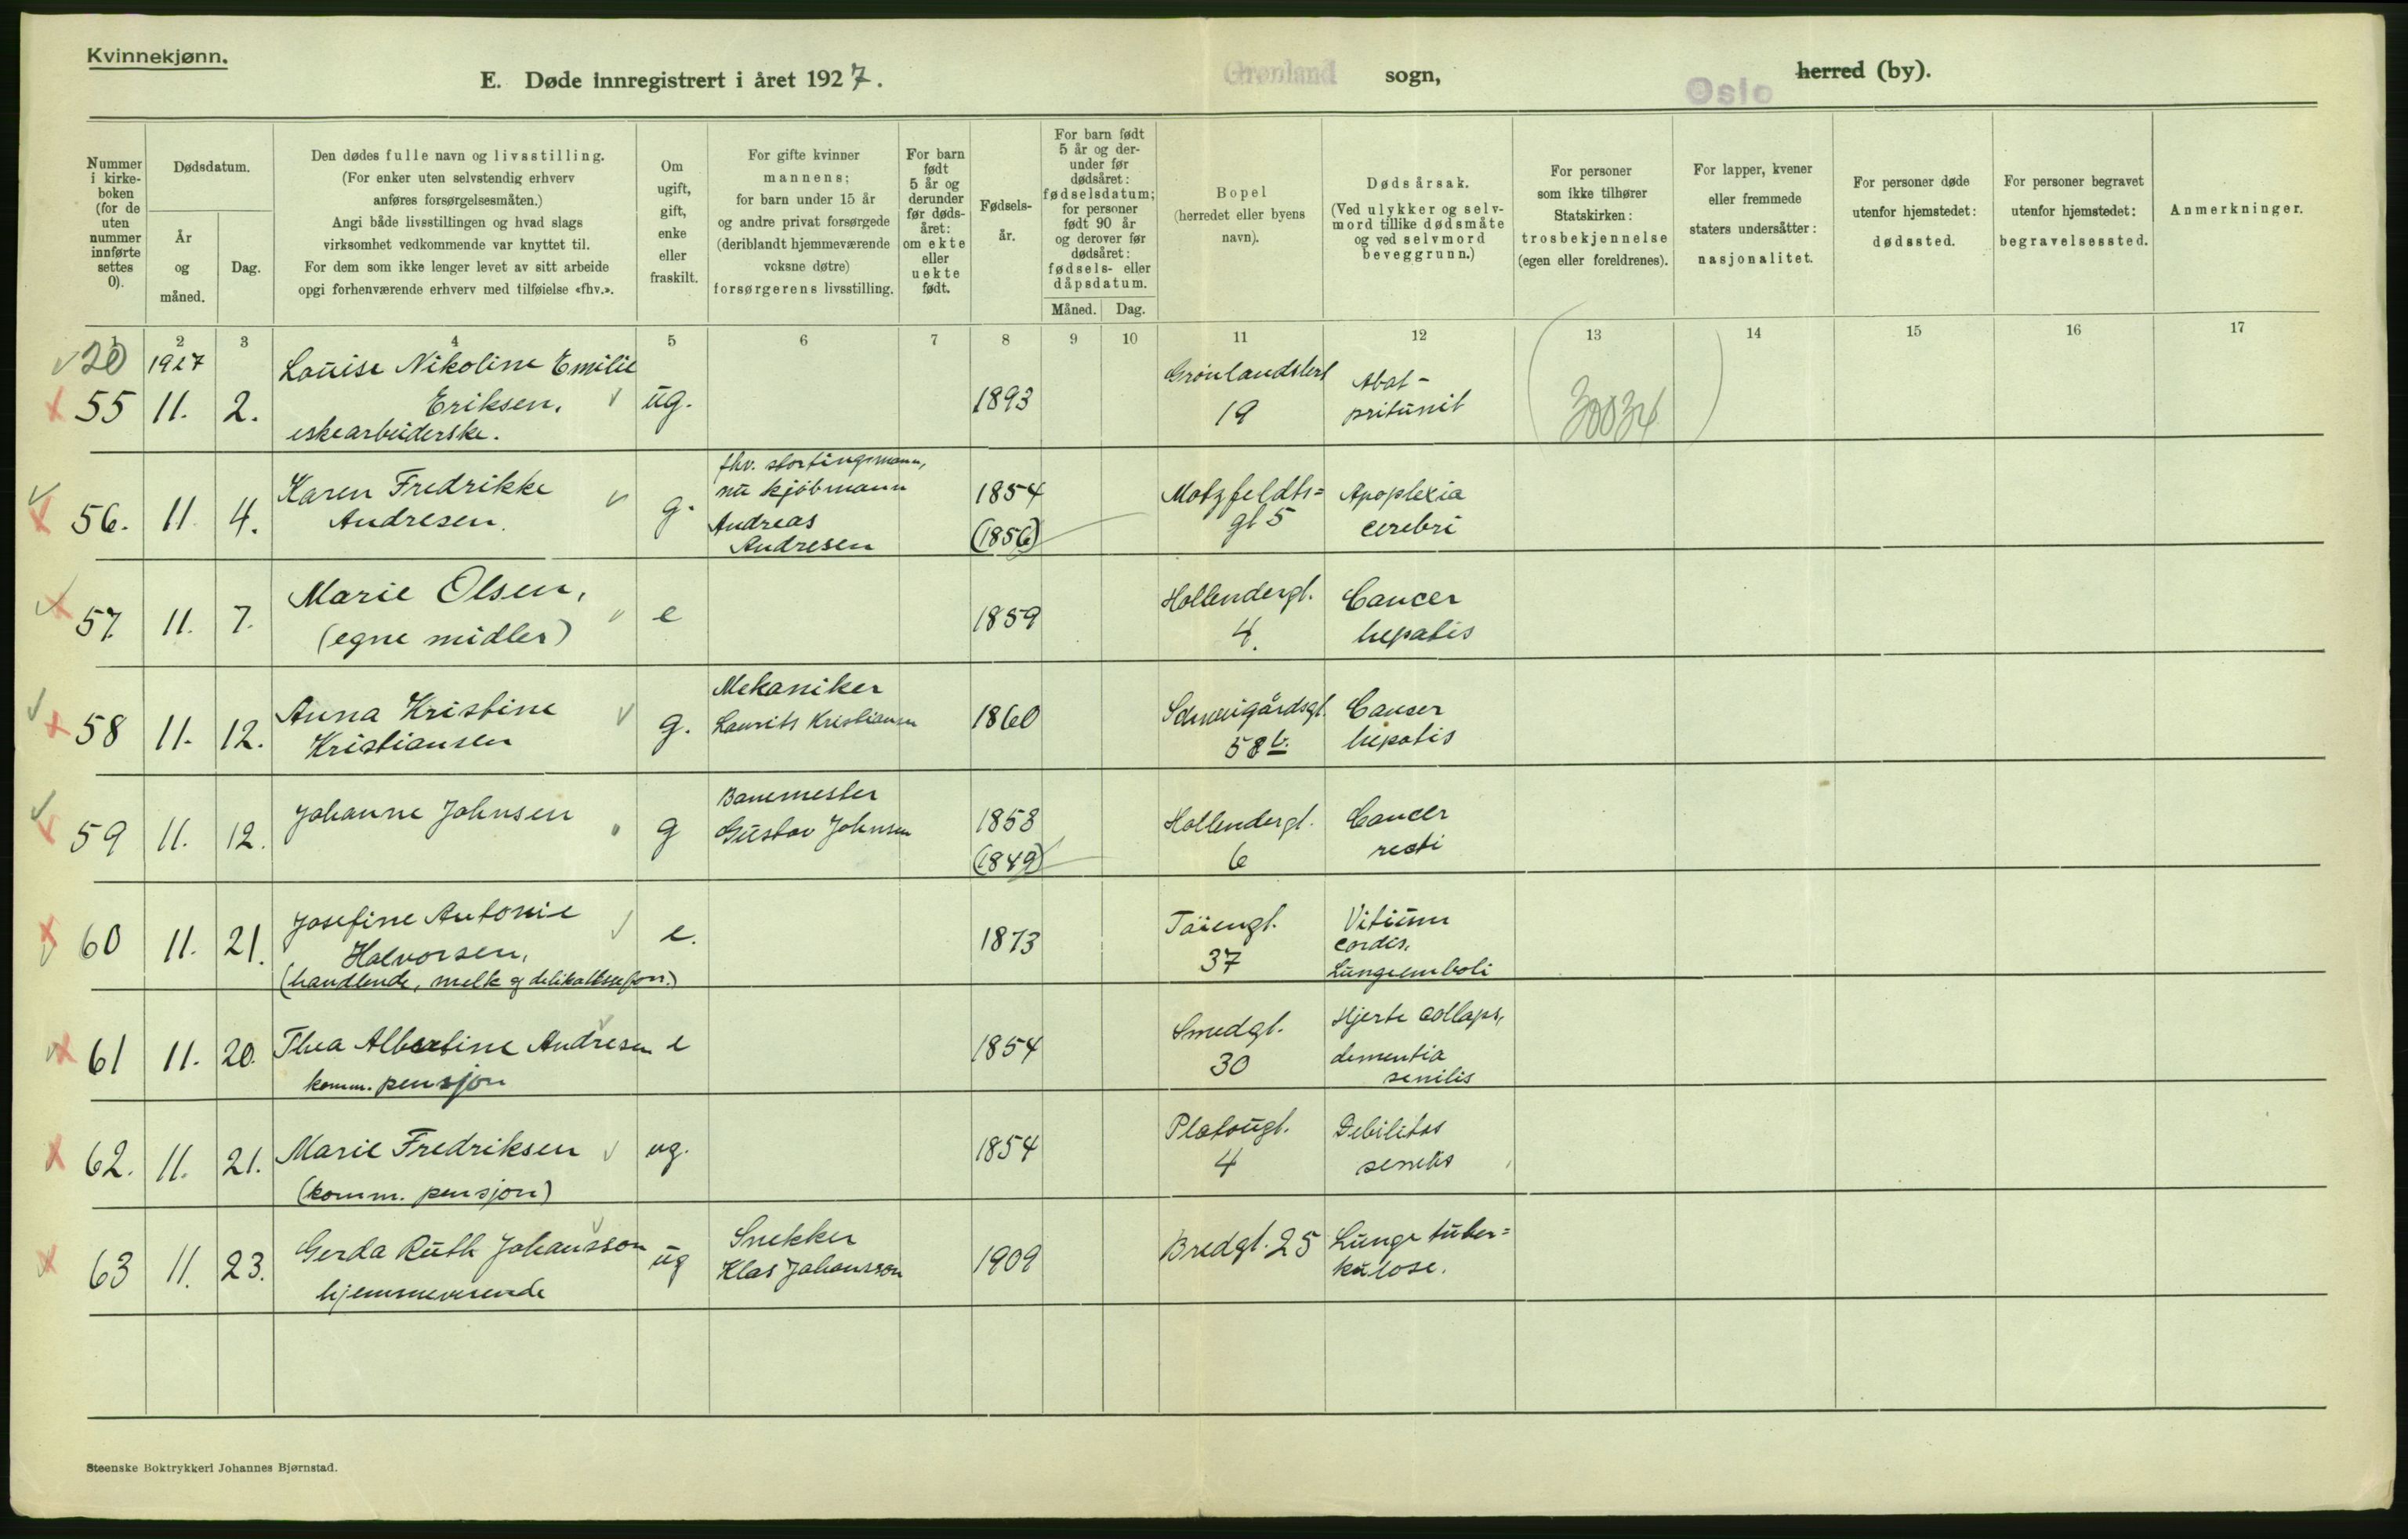 Kvinnekjønn.
E. Døde innregistrert i året 1927.
Grønland sogn,
Oslo herred (by).
Nummer i kirke-boken (for de uten nummer innførte settes 0).
Dødsdatum.
År og måned.
Dag.
Den dødes fulle navn og livsstilling.
(For enker uten selvstendig erhverv
anføres forsørgelsesmåten.)
Angi både livsstillingen og hvad slags
virksomhet vedkommende var knyttet til.
For dem som ikke lenger levet av sitt arbeide
opgi forhenværende erhverv med tilføielse «fhv.».
Om ugift, gift, enke eller fraskilt.
For gifte kvinner
mannens;
for barn under 15 år
og andre privat forsørgede
(deriblandt hjemmeværende
voksne døtre)
forsørgerens livsstilling.
For barn født 5 år og derunder før døds-året: om ekte eller uekte født.
Fødsels-år.
For barn født 5 år og der-under før dødsåret: fødselsdatum; for personer født 90 år og derover før dødsåret: fødsels- eller dåpsdatum.
Måned. Dag.
Bopel
(herredet eller byens
navn).
Dødsårsak.
(Ved ulykker og selv-
mord tillike dødsmåte
og ved selvmord
beveggrunn.)
For personer
som ikke tilhører
Statskirken:
trosbekjennelse
(egen eller foreldrenes).
For lapper, kvener
eller fremmede
staters undersåtter:
nasjonalitet.
For personer døde
utenfor hjemstedet:
dødssted.
For personer begravet
utenfor hjemstedet:
begravelsessted.
Anmerkninger.
1 2 3 4 5 6 7 8 9 10 11 12 13 14 15 16 17
20 1927 Louise Nikoline Emilie Grønlandsleret Abat-
55 11. 2. Eriksen, ug. 1893 19 pritunit
eskearbeiderske.
56. 11 4. Karen Fredrikke g. fhv. stortingsmann, 1854 Motzfeldts= Apoplexia
Andresen. nu kjøbmann (1856) gt 5 cerebri
Andreas
Andresen
57. 11. 7. Marie Olsen, e 1859 Hollendergt. Cancer
(egne midler) 4. hepatis
58 11. 12. Anna Kristine g. Mekaniker 1860 Schweigårdsgt. Cancer
Kristiansen Laurits Kristiansen 58 b. hepatis
59 11. 12. Johanne Johnsen g Banemester 1858 Hollendergt. Cancer
Gustav Johnsen (1849) 6 recti
60 11. 21. Josefine Antonie e. 1873 Tøiengt. Vitium
Halvorsen, 37 cordis,
(handlende, melk og delikatesseforr.) Lungeemboli
61 11. 20. Thea Albertine Andresen e 1854 Smedgt. Hjerte collaps,
komm. pensjon 30 dementia
senilis
62. 11. 21. Marie Fredriksen ug. 1854 Platougt. Debilitas
(komm. pensjon) 4 senilis
63 11. 23. Gerda Ruth Johansson ug Snekker 1909 Bredgt. 25 Lunge tuber=
hjemmeværende Klas Johansson kulose.
Steenske Boktrykkeri Johannes Bjørnstad.